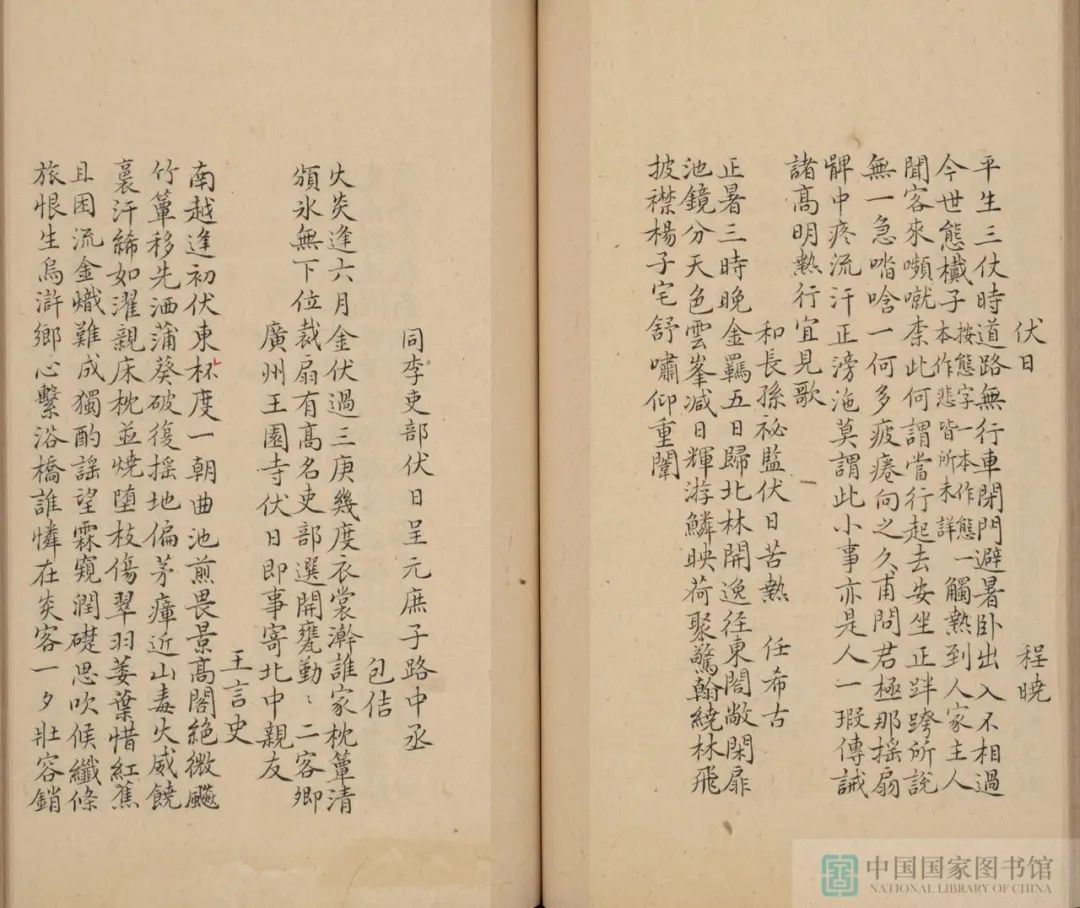 伏日　程曉
平生三仗時道路無行車閉門避暑卧出入不相過
今世態襶子
按態字一本作態一
本作悲皆所未詳
觸熱到人家主人
聞客來嚬噈柰此何謂當行起去安坐正跘跨所說
無一急唅一何多疲瘞向之久甫問君極那搖扇
髀中疼流汗正滂沲莫謂此小事亦是人一瑕傳誡
諸髙明熱行宜見歌
和長孫祕監伏日苦熱　任希古
正暑三時晚金羈五日歸北林開逸徑東閤敞閑扉
池鏡分天色雲峯減日輝游鱗映荷聚驚翰繞林飛
披襟楊子宅舒嘯仰重闈
同李吏部伏日呈元庶子路中丞
包佶
火炎逢六月金伏過三庚幾度衣裳澣誰家枕簟清
頒氷無下位裁扇有髙名吏部還開甕勤〻二客卿
廣州王園寺伏日即事寄北中親友
王言史
南越逢初伏東杯度一朝曲池煎畏景髙閣絶微飈
竹簟移先洒蒲葵破復摇地偏茅瘴近山毒火威饒
裛汗絺如濯親床枕並燒墮枝傷翠羽萎葉惜紅蕉
且困流金熾難成獨酌謡望霖窺潤礎思吹候纖條
旅恨生烏滸鄉心繫浴橋誰憐在炎客一夕壯容銷
中国国家图书馆
NATIONAL LIBRARY OF CHINA